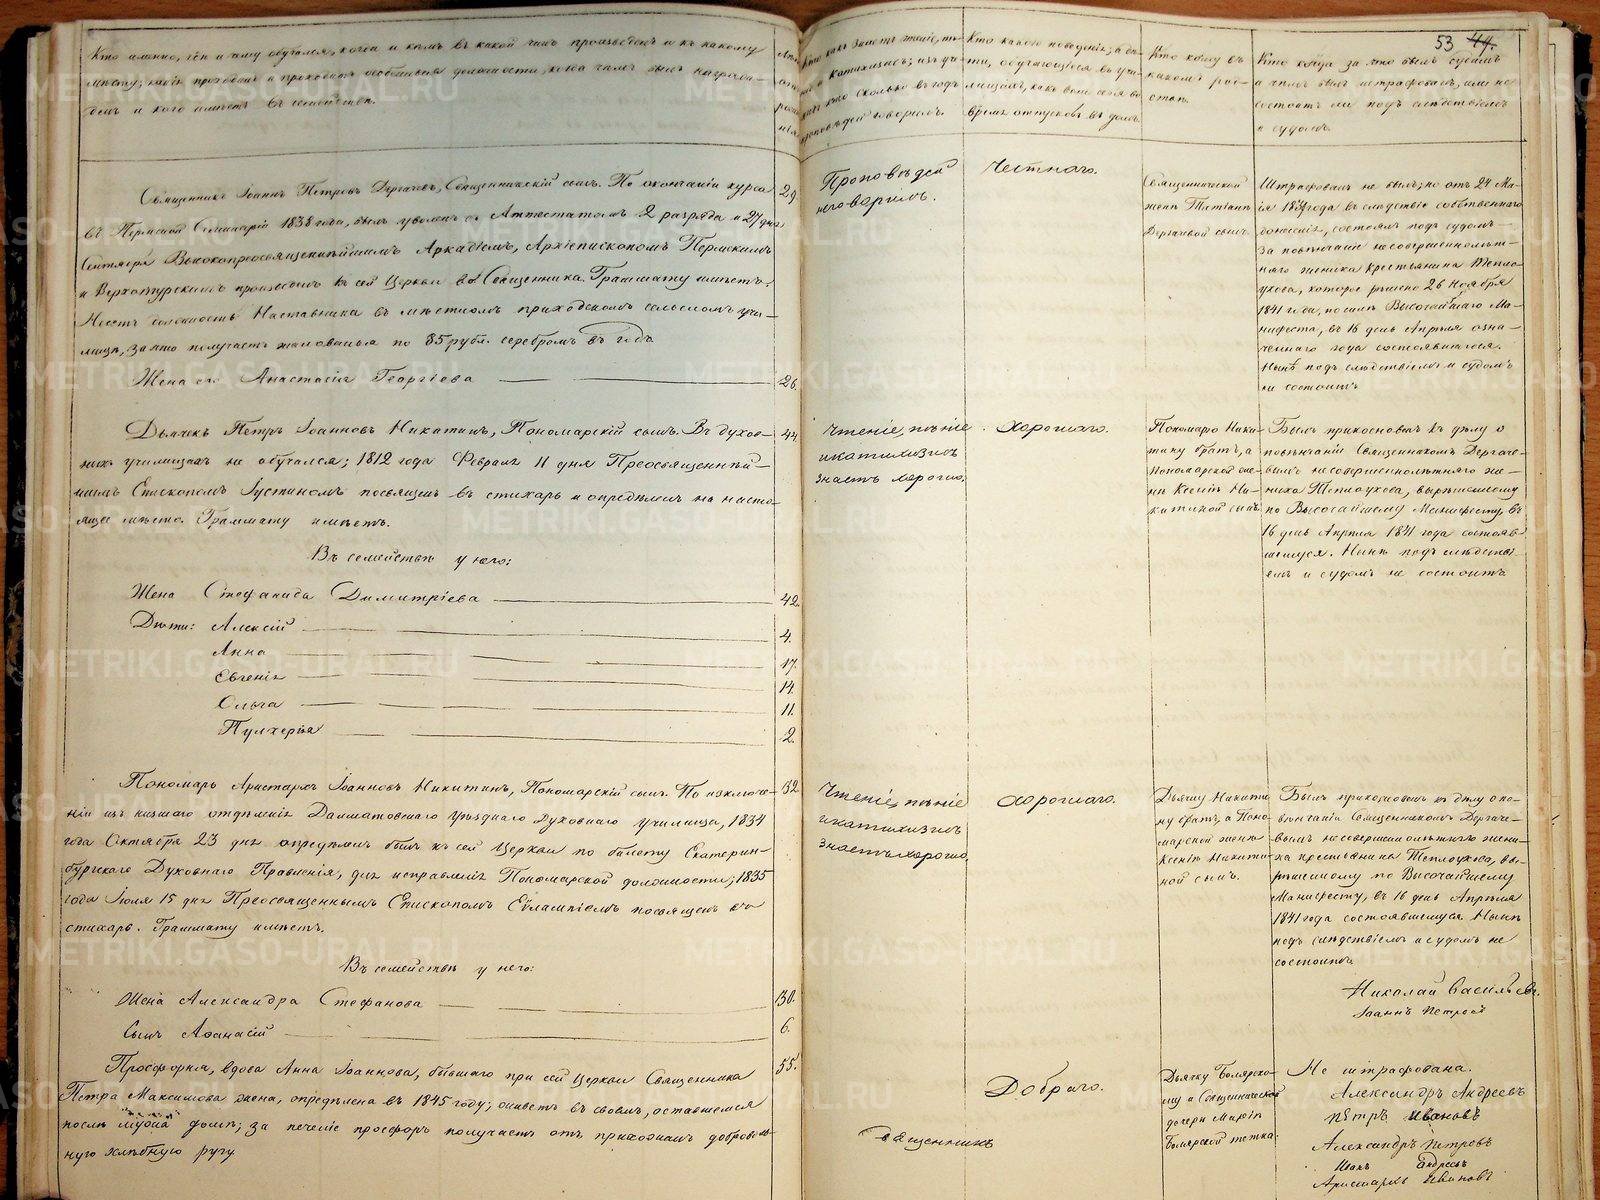 53 44.
Кто именно, гдѣ и чему обучался, когда и кѣмъ въ какой чинъ произведенъ и къ какому
мѣсту; какія проходилъ и проходитъ особливыя должности, когда чѣмъ былъ награж-
денъ и кого имѣетъ въ семействѣ.
Кто какъ знаетъ чтеніе, пѣ-
и катихизисъ; изъ уче-
кто сколько въ годъ
проповѣдей говорилъ.
Кто какого поведенія; а дѣ-
ти, обучающіеся въ учи-
лищахъ, какъ вели себя во
время отпусковъ въ домъ.
Кто кому въ
какомъ род-
ствѣ.
Кто когда за что былъ судимъ
и чѣмъ былъ штрафованъ, или не
состоитъ ли подъ слѣдствіемъ
и судомъ.
Священникъ Іоаннъ Петровъ Дергачевъ, Священническій сынъ. По окончаніи курса
въ Пермской Семинаріи 1838 года, былъ уволенъ съ Аттестатомъ 2 разряда и 27 дня
Сентября Высокопреосвященнѣйшимъ Аркадіемъ, Архіепископомъ Пермскимъ
и Верхотурскимъ произведенъ къ сей Церкви въ Священника. Граммату имѣетъ.
Несетъ должность Наставника въ мѣстномъ приходскомъ сельскомъ учи-
лищѣ, за что получаетъ жалованья по 85 рубл. серебромъ въ годъ
29.
Жена его Анастасія Георгіева
26.
Проповѣдей
неговорилъ.
Честнаго.
Священнической
женѣ Татіанѣ
Дергачевой сынъ.
Штрафованъ не былъ; но отъ 24 Ма-
ія года въ слѣдствіе собственнаго
донесенія, состоялъ подъ судомъ
за повѣнчаніе несовершеннолѣт-
няго жениха крестьянина Тепло-
ухова, которое рѣшено 26 Ноября
1841 года, по силѣ Высочайшаго Ма-
нифеста, въ 16 день Апрѣля озна-
ченнаго года состоявшагося.
Нынѣ подъ слѣдствіемъ и судомъ
не состоитъ
Дьячекъ Петръ Іоанновъ Никитинъ, Пономарскій сынъ. Въ духов-
ныхъ училищахъ не обучался; 1812 года Февраля 11 дня Преосвященнѣй-
шимъ Епископомъ Іустиномъ посвященъ въ стихарь и опредѣленъ на насто-
ящее мѣсто. Граммату имѣетъ.
44
Чтеніе, пѣніе
и катихизисъ
знаетъ хорошо;
Хорошаго.
Пономарю Ники-
тину братъ, а
Пономарской же-
нѣ Ксеніи Ни-
китиной сынъ.
Былъ прикосновенъ къ дѣлу о
повѣнчаніи Священникомъ Дергаче-
вымъ несовершеннолѣтняго же-
ниха Теплоухова, вырѣшенному
по Высочайшему Манифесту, въ
16 день Апрѣля 1841 года состояв-
шемуся. Нынѣ подъ слѣдстві-
емъ и судомъ не состоитъ
Въ семействѣ у него:
Жена Стефанида Димитріева 42.
Дѣти: Алексій 4.
Анна 17.
Евгенія 14.
Ольга 11.
Пулхерія 2.
Пономарь Аристархъ Іоанновъ Никитинъ, Пономарскій сынъ. По исключе-
ніи изъ низшаго отдѣленія Далматовскаго уѣзднаго Духовнаго училища, 1834
года Октября 23 дня опредѣленъ былъ къ сей Церкви по билету Екатерин-
бургскаго Духовнаго Правленія, для исправленія Пономарской должности; 1835
года Іюля 15 дня Преосвященнымъ Епископомъ Евлампіемъ посвященъ въ
стихарь. Граммату имѣетъ.
32
Чтеніе, пѣніе
и катихизисъ
знаетъ хорошо,
Хорошаго.
Дьячку Никити-
ну братъ, а Поно-
марской женѣ
Ксеніи Никити-
ной сынъ.
Былъ прикосновенъ къ дѣлу о по-
вѣнчаніи Священникомъ Дергаче-
вымъ несовершеннолѣтняго жени-
ха крестьянина Теплоухова, вы-
рѣшенному по Высочайшему
Манифесту, въ 16 день Апрѣля
1841 года состоявшемуся. Нынѣ
подъ слѣдствіемъ и судомъ не
состоитъ.
Въ семействѣ у него:
Жена Александра Стефанова 30.
Сынъ Аѳанасій 6.
Николай Васильевъ
Іоаннъ Петровъ
Просфорня, вдова Анна Іоаннова, бывшаго при сей Церкви Священника
Петра Максимова жена, опредѣлена въ 1845 году; живетъ въ своемъ, оставшемся
послѣ мужа домѣ; за печеніе просфоръ получаетъ отъ прихожанъ доброволь-
ную хлѣбную ругу
55.
Добраго.
Дьячку Боярско-
му и Священнической
дочери Маріи
Боярской тетка.
Не штрафована.
Александръ Андреевъ
Пѣтръ Ивановъ
Александръ Петровъ
Иванъ Андреевъ
Аристархъ Ивановъ
Священникъ
METRIKI.GASO-URAL.RU